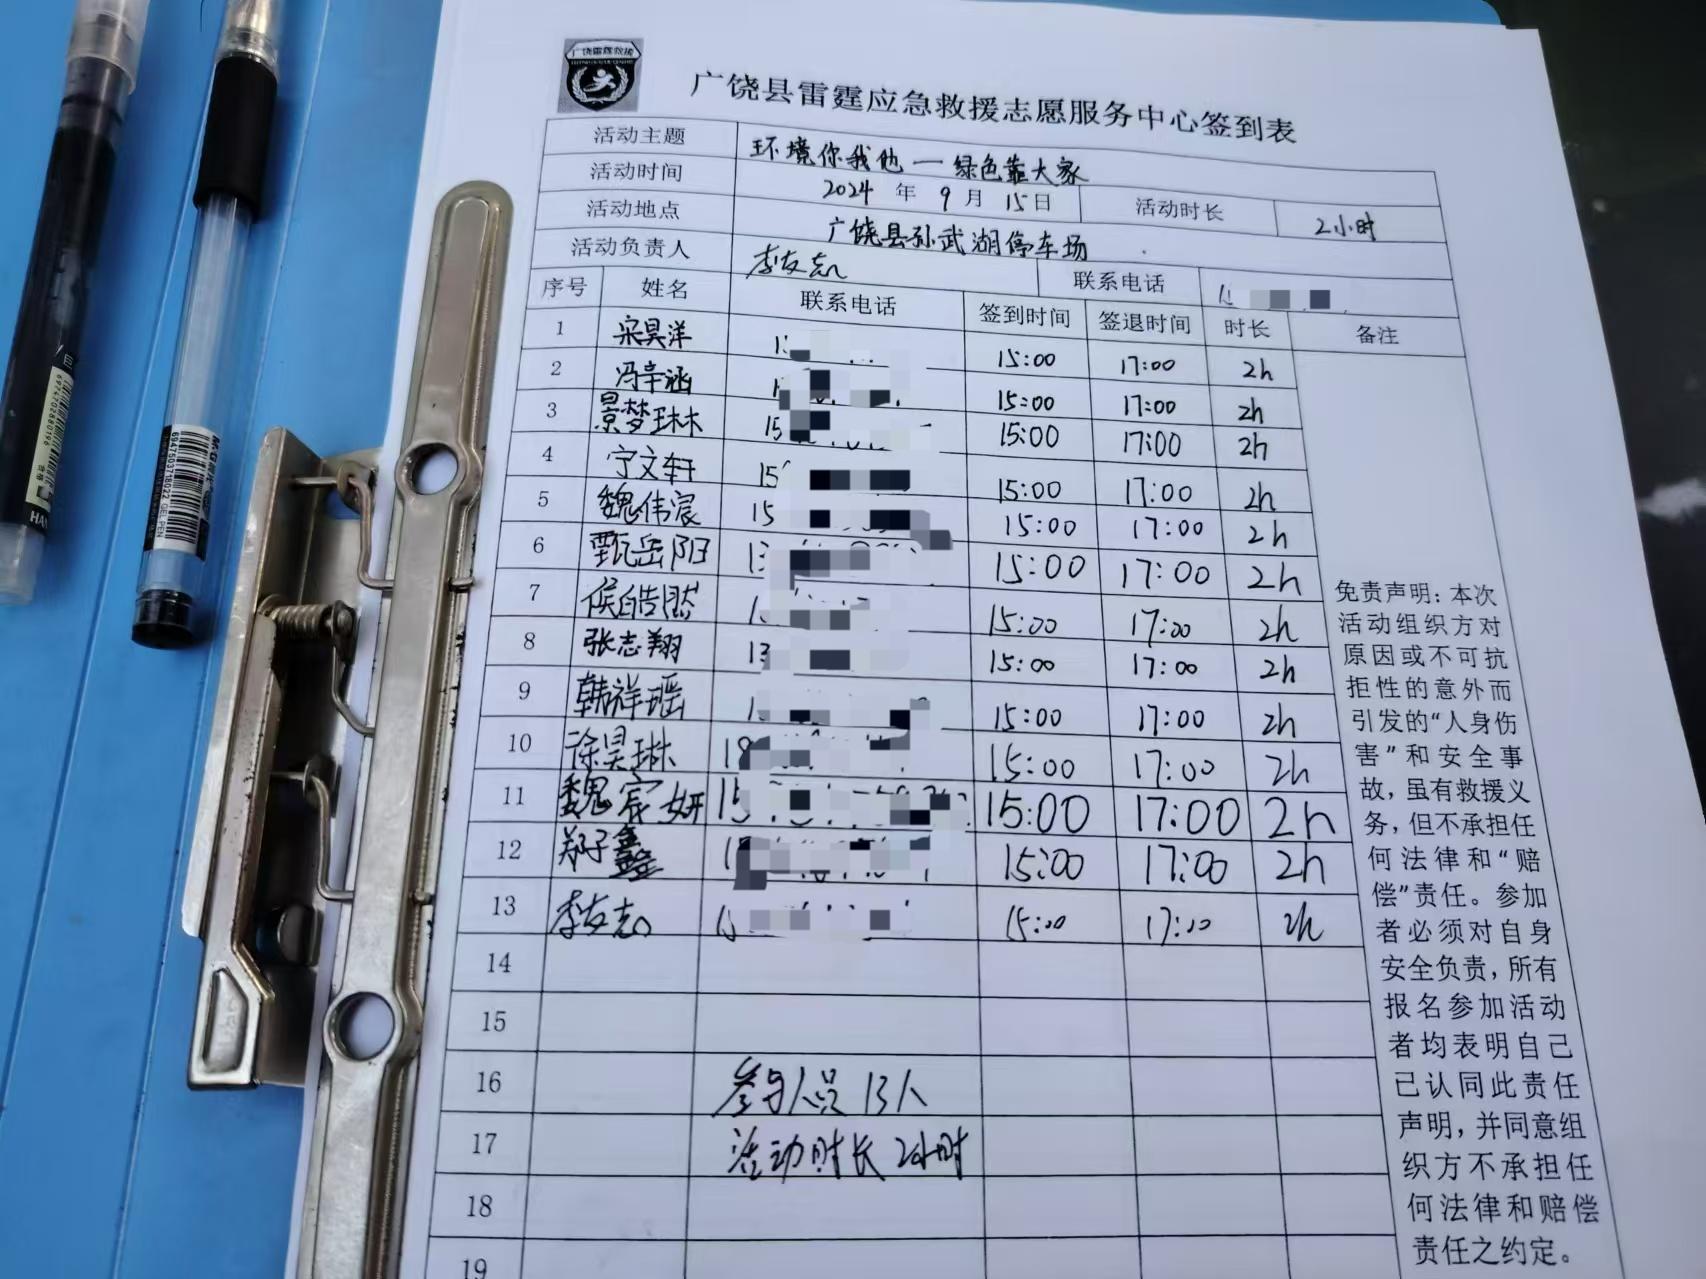 广饶雷霆救援
广饶县雷霆应急救援志愿服务中心签到表
活动主题 环境你我他—绿色靠大家
活动时间 2024 年 9 月 15日 活动时长 2小时
活动地点 广饶县孙武湖停车场
活动负责人 李友志 联系电话
序号 姓名 联系电话 签到时间 签退时间 时长 备注
1 宋昊洋 15:00 17:00 2h
2 冯辛涵 15:00 17:00 2h
3 景梦琳 15 15:00 17:00 2h
4 宁文轩 15 15:00 17:00 2h
5 魏伟宸 15 15:00 17:00 2h
6 甄岳阳 13 15:00 17:00 2h
7 侯皓然 15:00 17:00 2h
8 张志翔 13 15:00 17:00 2h
9 韩祥瑶 15:00 17:00 2h
10 徐昊琳 18 15:00 17:00 2h
11 魏宸妍 15 15:00 17:00 2h
12 郑子鑫 15:00 17:00 2h
13 李友志 15:00 17:00 2h
14
15
16 参与人员 13人
17 活动时长 2小时
18
19
免责声明：本次
活动组织方对
原因或不可抗
拒性的意外而
引发的“人身伤
害”和安全事
故，虽有救援义
务，但不承担任
何法律和“赔
偿”责任。参加
者必须对自身
安全负责，所有
报名参加活动
者均表明自己
已认同此责任
声明，并同意组
织方不承担任
何法律和赔偿
责任之约定。
6947503718022 GEL PEN
6974702880196